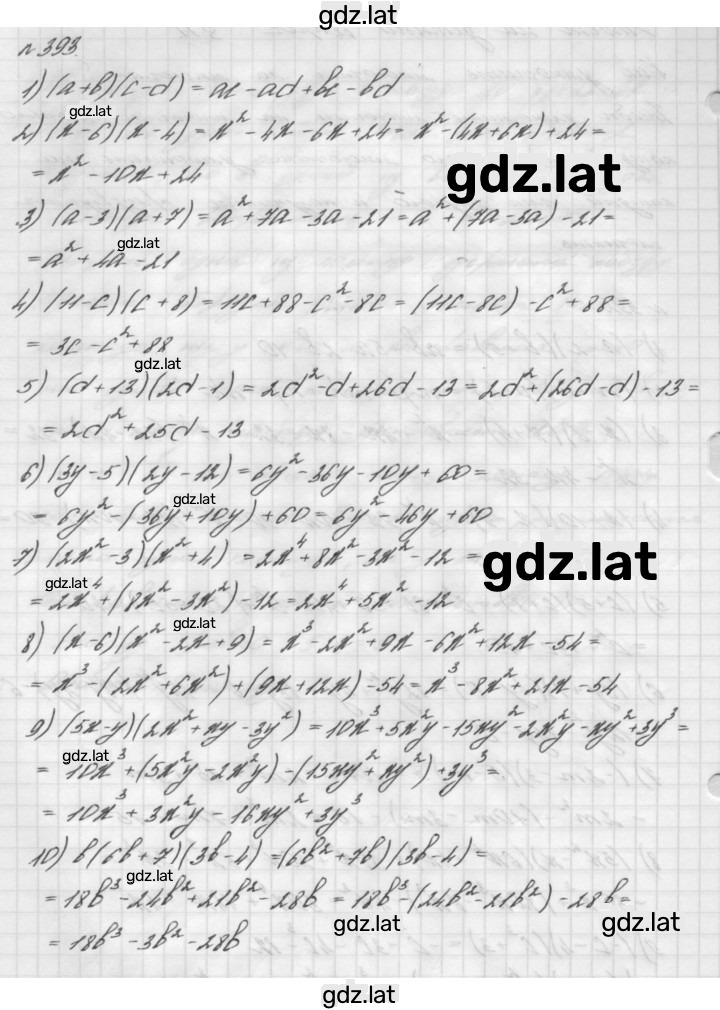 gdz.lat
n 393.
1) (a+b)(c-d) = ac - ad + bc - bd
gdz.lat
2) (x-6)(x-4) = x² - 4x - 6x + 24 = x² - (4x+6x) + 24 =
gdz.lat
= x² - 10x + 24
3) (a-3)(a+7) = a² + 7a - 3a - 21 = a² + (7a - 3a) - 21 =
gdz.lat
= a² + 4a - 21
4) (11-c)(c+8) = 11c + 88 - c² - 8c = (11c - 8c) - c² + 88 =
= 3c - c² + 88
gdz.lat
5) (d+13)(2d-1) = 2d² - d + 26d - 13 = 2d² + (26d - d) - 13 =
= 2d² + 25d - 13
6) (3y-5)(2y-12) = 6y² - 36y - 10y + 60 =
gdz.lat
= 6y² - (36y + 10y) + 60 = 6y² - 46y + 60
7) (2x² - 3)(x² + 4) = 2x⁴ + 8x² - 3x² - 12 =
gdz.lat
gdz.lat
= 2x⁴ + (8x² - 3x²) - 12 = 2x⁴ + 5x² - 12
gdz.lat
8) (x-6)(x² - 2x + 9) = x³ - 2x² + 9x - 6x² + 12x - 54 =
= x³ - (2x² + 6x²) + (9x + 12x) - 54 = x³ - 8x² + 21x - 54
9) (5x-y)(2x² + xy - 3y²) = 10x³ + 5x²y - 15xy² - 2x²y - xy² + 3y³ =
gdz.lat
= 10x³ + (5x²y - 2x²y) - (15xy² + xy²) + 3y³ =
= 10x³ + 3x²y - 16xy² + 3y³
10) b(6b+7)(3b-4) = (6b² + 7b)(3b-4) =
gdz.lat
= 18b³ - 24b² + 21b² - 28b = 18b³ - (24b² - 21b²) - 28b =
gdz.lat
gdz.lat
= 18b³ - 3b² - 28b
gdz.lat